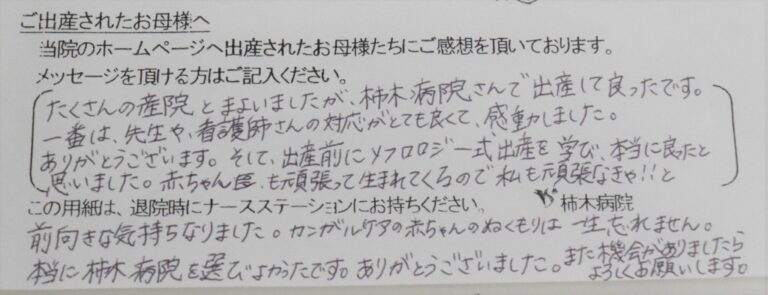 ご出産されたお母様へ
当院のホームページへ出産されたお母様たちにご感想を頂いております。
メッセージを頂ける方はご記入ください。
たくさんの産院とまよいましたが、柿木病院さんで出産して良ったです。
一番は、先生や、看護師さんの対応がとても良くて、感動しました。
ありがとうございます。そして、出産前にソフロロジー式出産を学び、本当に良ったと
思いました。赤ちゃんも頑張って生まれてくるので私も頑張なきゃ!!と
この用紙は、退院時にナースステーションにお持ちください。 柿木病院
前向きな気持ちなりました。カンガルケアの赤ちゃんのぬくもりは一生忘れません。
本当に柿木病院を選びよかったです。ありがとうございました。また機会がありましたら
よろしくお願いします。